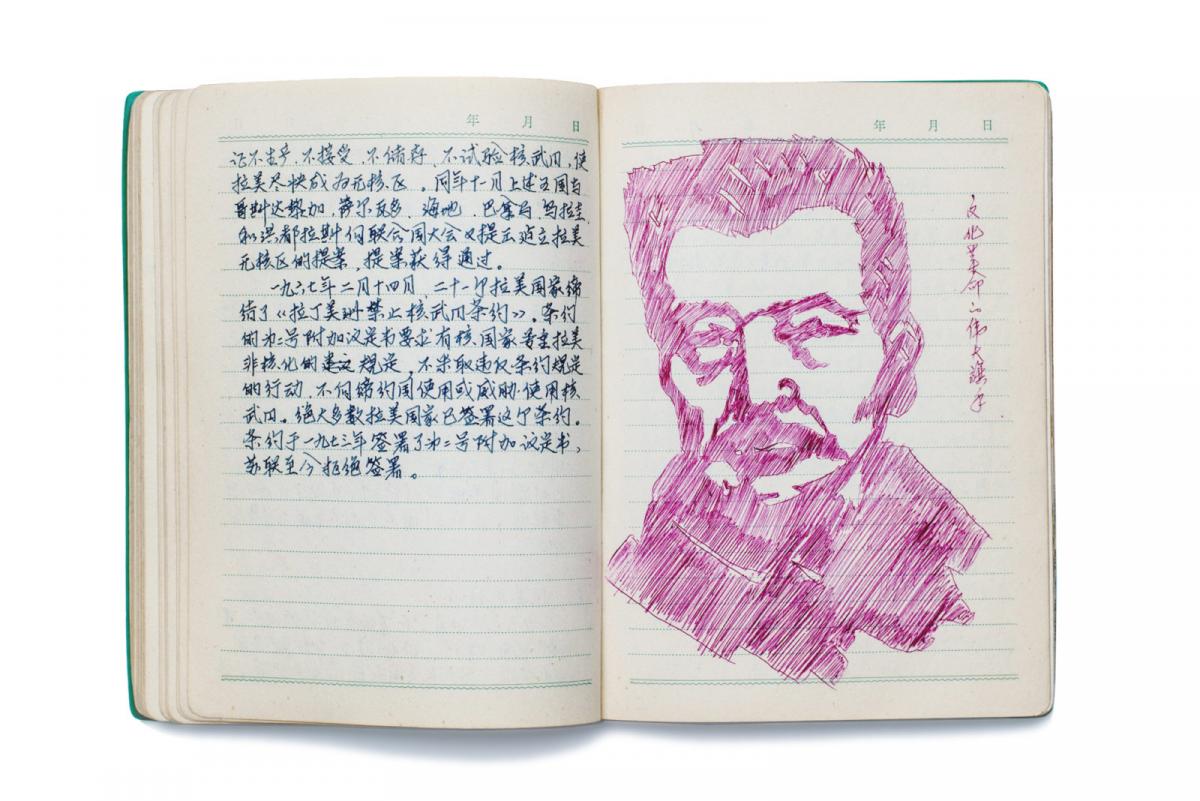 年 月 日
证不生产、不接受、不储存、不试验核武器,使
拉美尽快成为无核区。同年十一月上述五国与
哥斯达黎加、萨尔瓦多、海地、巴拿马、乌拉圭
和洪都拉斯向联合国大会又提出建立拉美
无核区的提案,提案获得通过。
一九六七年二月十四月,二十一个拉美国家缔
结了《拉丁美洲禁止核武器条约》。条约
的为二号附加议定书要求有核国家尊重拉美
非核化的 规定,不采取违反条约规定
的行动,不向缔约国使用或威胁使用核
武器。绝大多数拉美国家已签署这个条约。
条约于一九七三年签署了第二号附加议定书,
苏联至今拒绝签署。
年 月 日
文化革命的伟大旗手